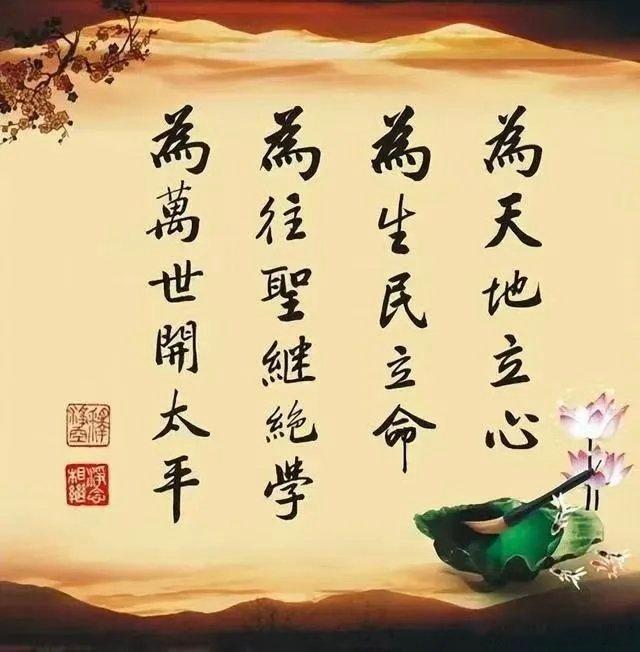 為天地立心
為生民立命
為往聖継絶學
為萬世開太平
淨念
相繼